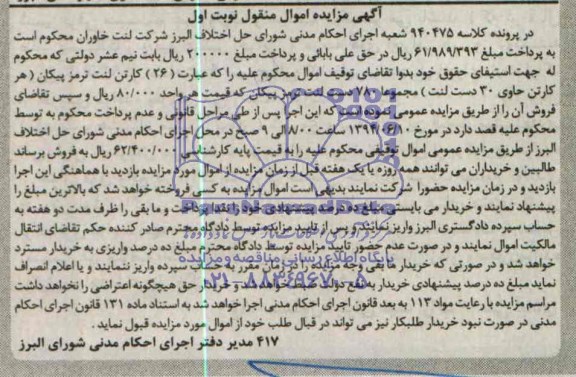 آگهی مزایده اموال منقول نوبت اول
در پرونده کلاسه ۹۴۰۴۷۵ شعبه اجرای احکام مدنی شورای حل اختلاف البرز شرکت لنت خاوران محکوم است
به پرداخت مبلغ ۶۱/۹۸۹/۳۹۳ ریال در حق علی بابائی و پرداخت مبلغ ۲۰۰۰۰۰ ریال بابت نیم عشر دولتی که محکوم
له جهت استیفای حقوق خود بدوا تقاضای توقیف اموال محکوم علیه را که عبارت (۲۶) کارتن لنت ترمز پیکان (هر
کارتن حاوی ۳۰ دست لنت) مجموعا ۷۸۰ دست لنت ترمز پیکان که قیمت هر واحد ۸۰/۰۰۰ ریال و سپس تقاضای
فروش آن را از طریق مزایده عمومی نموده است که این اجرا پس از طی مراحل قانونی و عدم پرداخت محکوم به توسط
محکوم علیه قصد دارد در مورخ ۱۳۹۴/۰۶/۱۰ ساعت ۸/۰۰ الی ۹ صبح در محل اجرای احکام مدنی شورای حل اختلاف
البرز از طریق مزایده عمومی اموال توقیفی محکوم علیه را به قیمت پایه کارشناسی ۶۲/۴۰۰/۰۰۰ ریال به فروش برساند
طالبین و خریداران می توانند همه روزه یا یک هفته قبل از زمان مزایده از اموال مورد مزایده بازدید با هماهنگی این اجرا
بازدید و در زمان مزایده حضورا شرکت نمایند بدیهی است اموال مزایده به کسی فروخته خواهد شد که بالاترین مبلغ را
پیشنهاد نمایند و خریدار می بایستی مبلغ ده درصد پیشنهادی خود را نقدا پرداخت و ما بقی را ظرف مدت دو هفته به
حساب سپرده دادگستری البرز واریز نمایند و پس از تایید مزایده توسط دادگاه محترم صادر کننده حکم تقاضای انتقال
مالکیت اموال نمایند و در صورت عدم حضور تایید مزایده توسط دادگاه محترم مبلغ ده درصد واریزی به خریدار مسترد
خواهد شد و در صورتی که خریدار ما بقی وجه مزایده را در زمان مقرر به حساب سپرده واریز ننمایند و یا اعلام انصراف
نماید مبلغ ده درصد پیشنهادی خریدار به نفع دولت ضبط خواهد شد و خریدار حق هیچگونه اعتراضی را نخواهد داشت
مراسم مزایده با رعایت مواد ۱۱۳ به بعد قانون اجرای احکام مدنی اجرا خواهد شد به استناد ماده ۱۳۱ قانون اجرای احکام
مدنی در صورت نبود خریدار طلبکار نیز می تواند در قبال طلب خود از اموال مورد مزایده قبول نماید.
۴۱۷ مدیر دفتر اجرای احکام مدنی شورای البرز
پایگاه اطلاع رسانی مناقصه و مزایده
۰۲۱-۸۸۳۴۹۶۷۰-۵